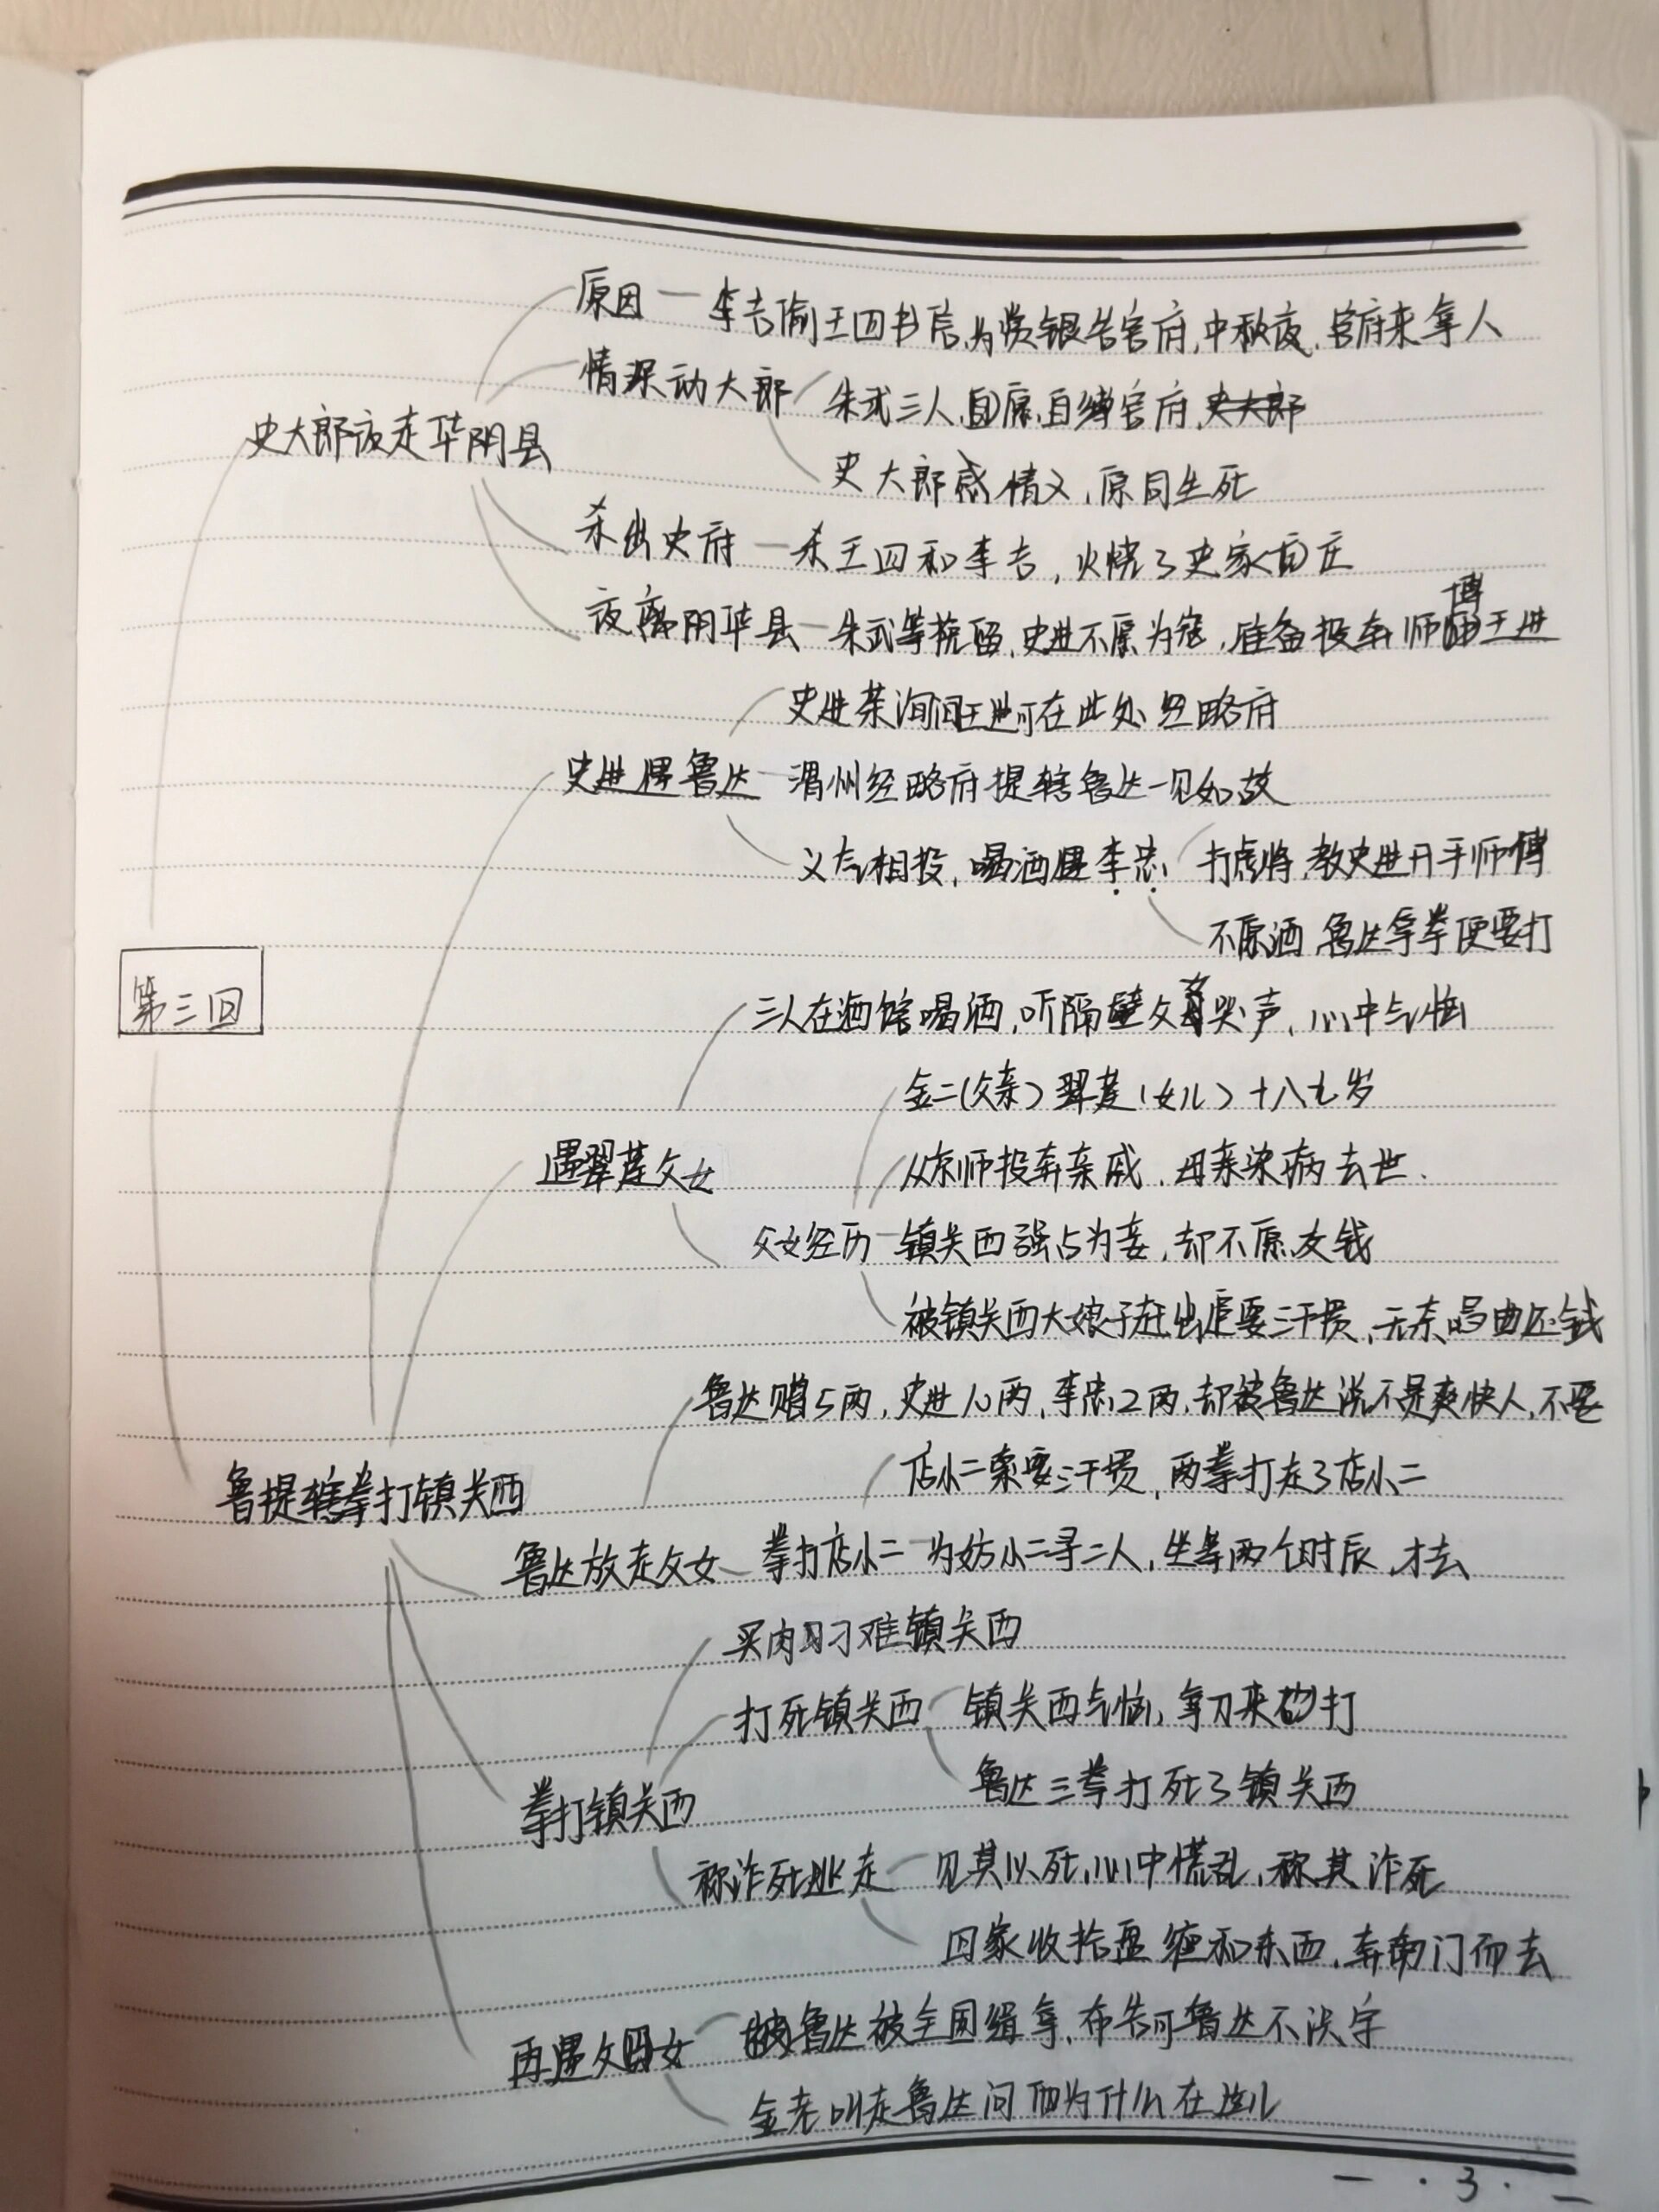 原因 — 李吉偷王四书信,为赏银告官府,中秋夜,官府来拿人
情深动大郎 朱武三人,自愿自缚官府,
史大郎夜走华阴县
史大郎感情义,愿同生死
杀出史府 — 杀王四和李吉,火烧了史家
夜离阴华县 — 朱武等挽留,史进不愿为寇,准备投奔师傅王进
史进茶询问王进可在此处经略府
史进遇鲁达 渭州经略府提辖鲁达一见如故
义气相投,喝酒遇李忠 打虎将,教史进开手师傅
不愿酒,鲁达拿拳便要打
第三回
三人在酒馆喝酒,听隔壁父女哭声,心中气恼
金二(父亲)翠莲(女儿)十八九岁
遇翠莲父女
从京师投奔亲戚,母亲染病去世.
父女经历 — 镇关西强占为妾,却不愿交钱
被镇关西大娘子赶出虚要三千贯,无奈唱曲还钱
鲁达赠5两,史进10两,李忠2两,却被鲁达说不是爽快人,不要
店小二索要三千贯,两拳打走了店小二
鲁提辖拳打镇关西
鲁达放走父女 — 拳打店小二 — 为妨小二寻二人,坐等两个时辰,才去
买肉刁难镇关西
打死镇关西 镇关西气恼,拿刀来砍打
鲁达三拳打死了镇关西
拳打镇关西
称诈死逃走 见其以死,心中慌乱,称其诈死
回家收拾盘缠和东西,奔南门而去
再遇父女 鲁达被全国缉拿,布告可鲁达不识字
金老叫走鲁达问他为什么在这儿
— · 3 · —